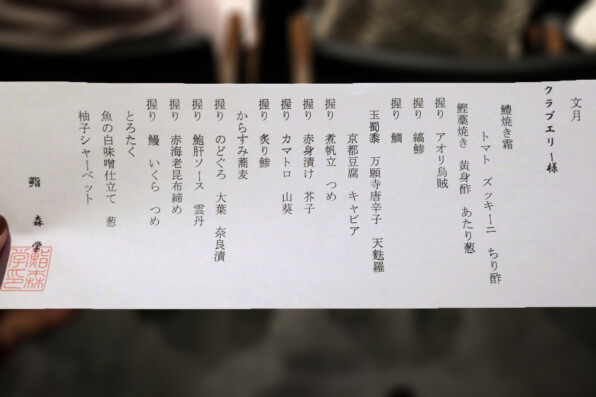 文月
クラブエリー様
鱧焼き霜
トマト ズッキーニ ちり酢
鰹藁焼き 黄身酢 あたり葱
握り アオリ烏賊
握り 縞鯵
握り 鯛
玉蜀黍 万願寺唐辛子 天麩羅
京都豆腐 キャビア
握り 煮帆立 つめ
握り 赤身漬け 芥子
握り カマトロ 山葵
握り 炙り鯵
からすみ蕎麦
握り のどぐろ 大葉 奈良漬
握り 鮑肝ソース 雲丹
握り 赤海老昆布締め
握り 鰻 いくら つめ
とろたく
魚の白味噌仕立て 葱
柚子シャーベット
鮨 森 學